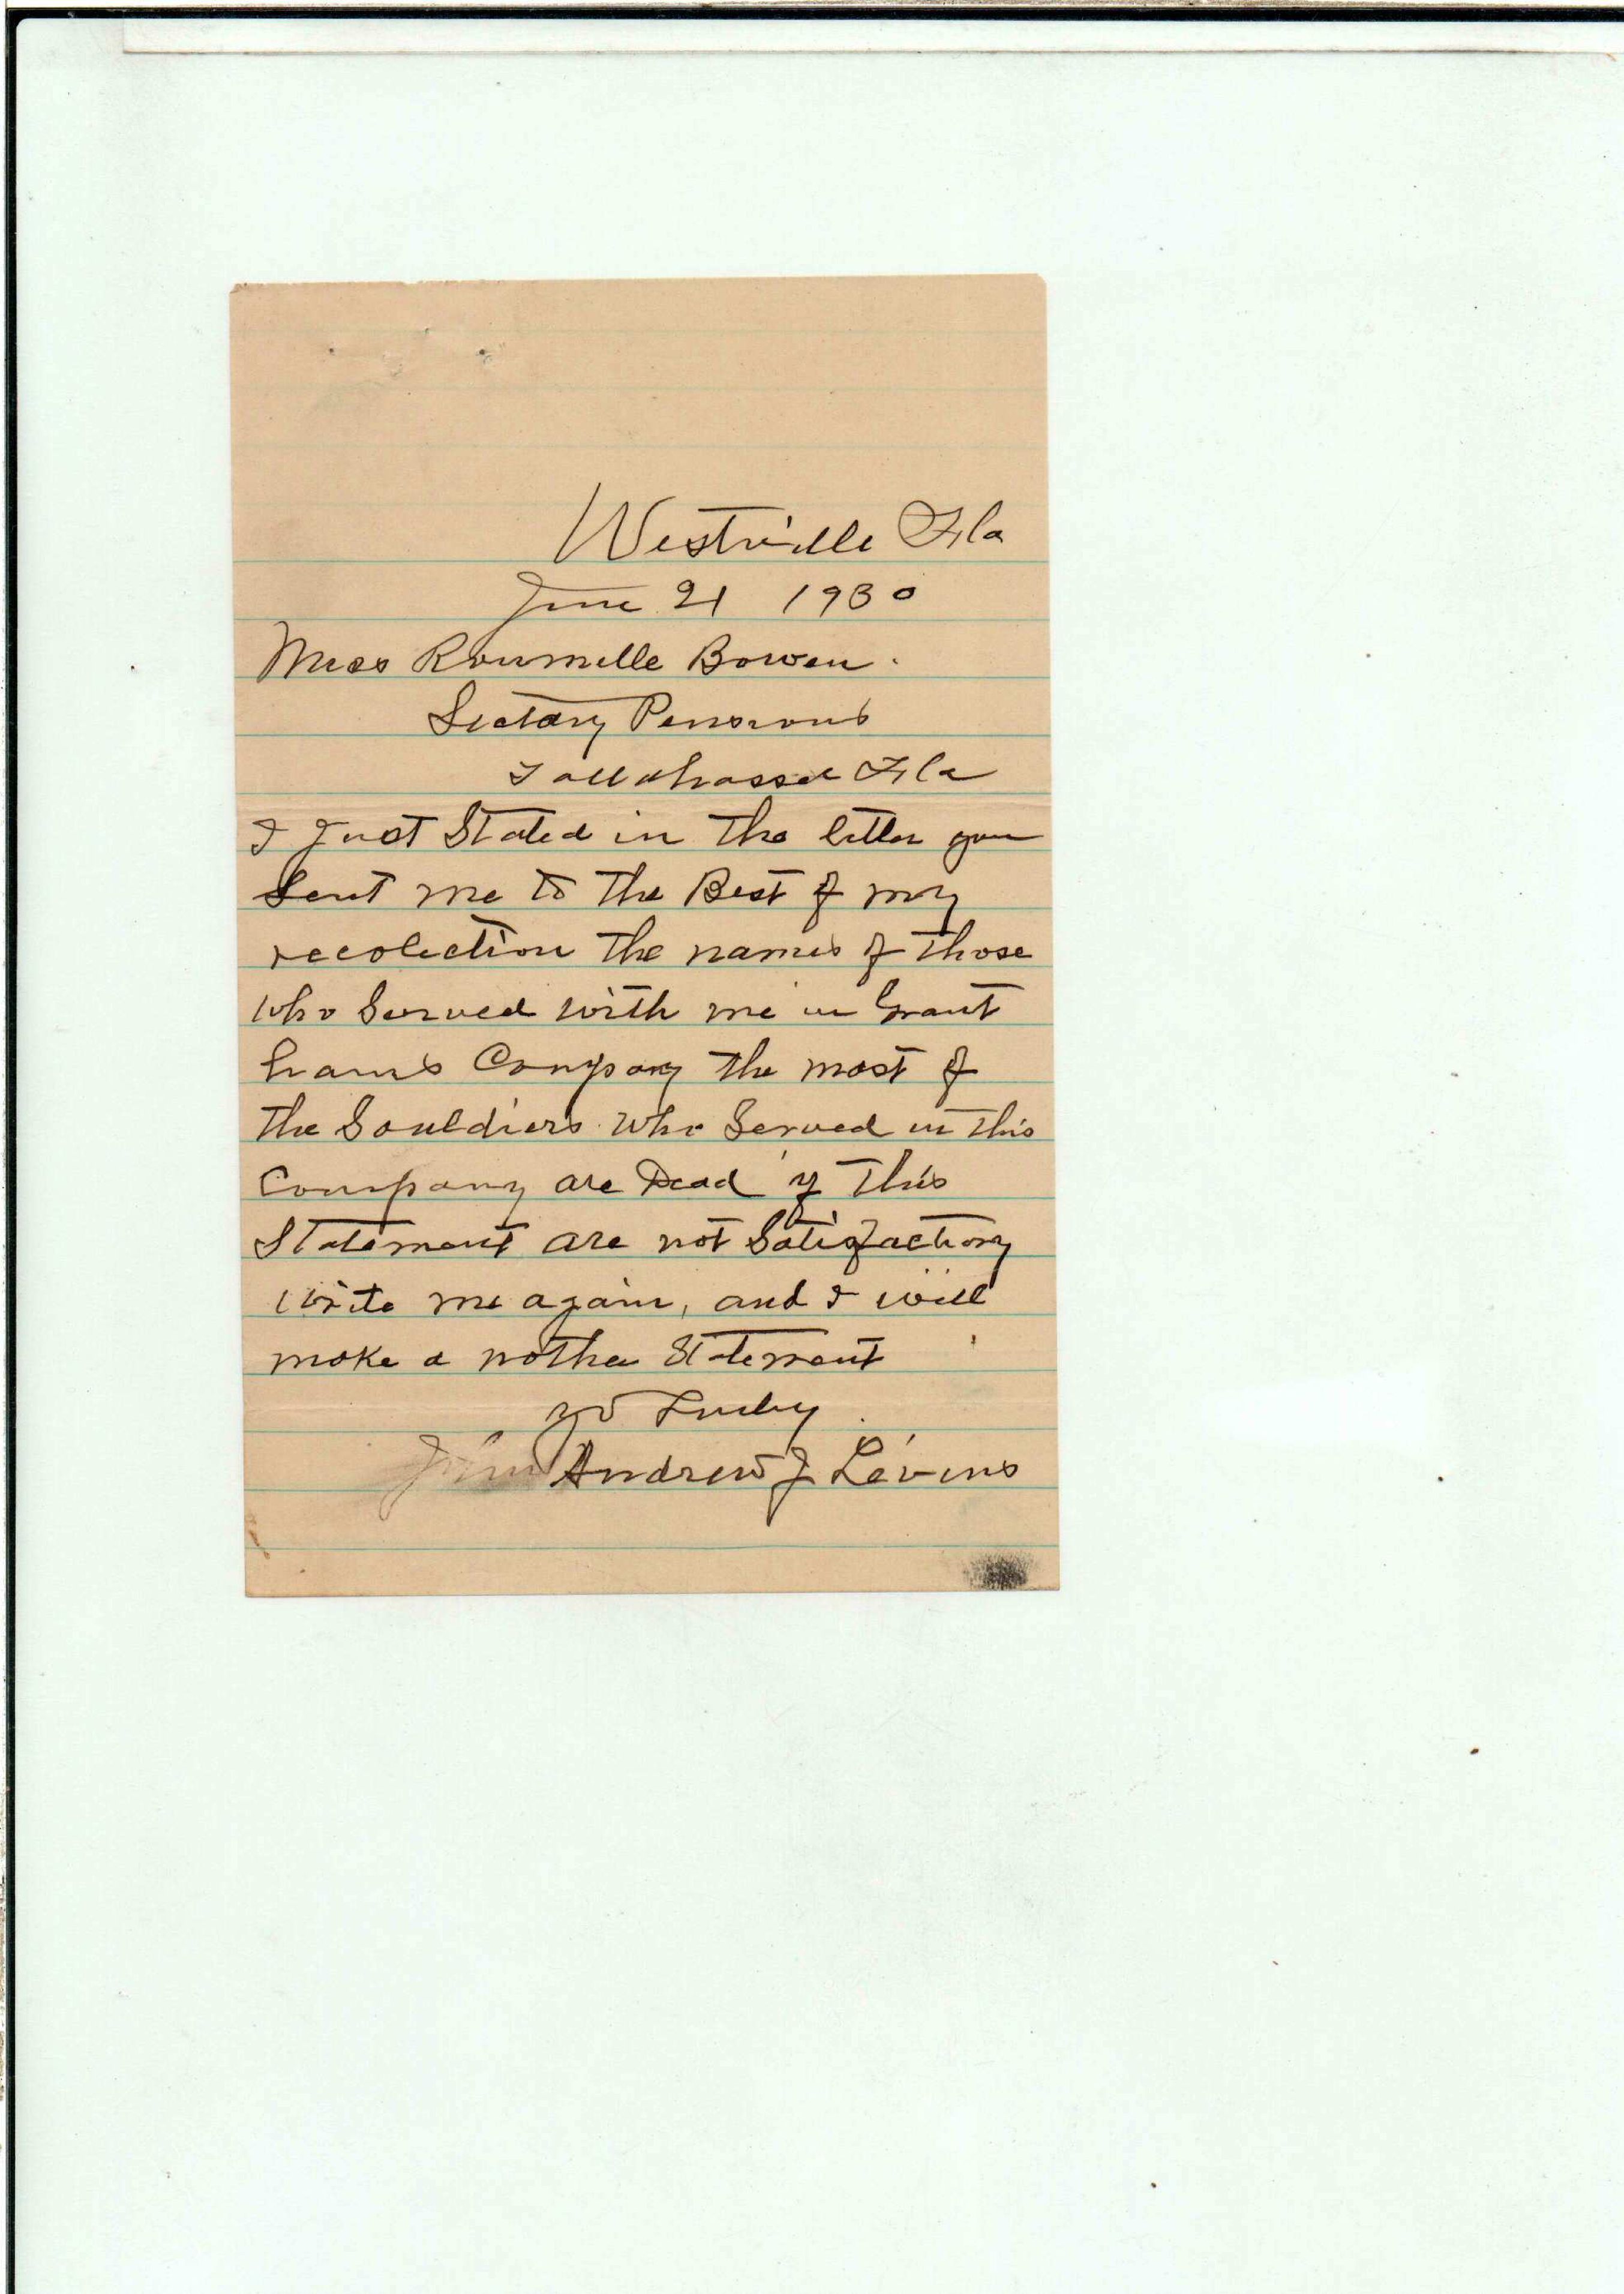 Westville Fla
June 21 1930
Miss Roumelle Bowen.
Sectary Pensions
Tallahassee Fla
I Just Stated in the letter you
Sent me to the Best of my
recolection the names of those
who Served with me in Grant
hams Company the most of
the Souldiers who Served in this
Company are Dead if this
Statement are not Satisfactiory
write me again, and I will
make a nother Statement
yo Truly.
Andrew J Levins